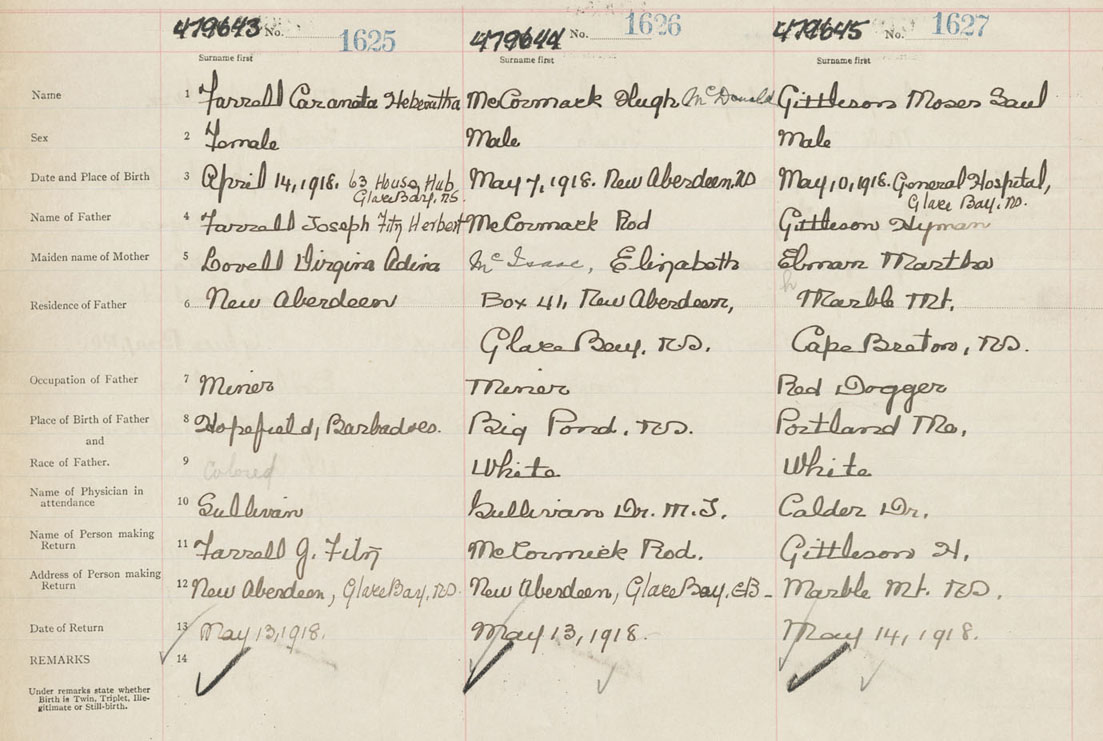 479643 No. 1625 479644 No. 1626 479645 No. 1627
Surname first Surname first Surname first
Name 1 Farrell Caranata Heberatha McCormack Hugh McDonald Gittleson Moses Saul
Sex 2 Female Male Male
Date and Place of Birth 3 April 14, 1918. 63 House, Hub, Glace Bay, N.S. May 7, 1918. New Aberdeen, N.S May 10, 1918. General Hospital, Glace Bay, N.S.
Name of Father 4 Farrell Joseph Fitz Herbert McCormack Rod Gittleson Hyman
Maiden name of Mother 5 Lovell Virgina Adina McIsaac, Elizabeth Elman Martha
Residence of Father 6 New Aberdeen Box 41, New Aberdeen, Marble Mt,
Glace Bay, N.S. Cape Breton, N.S.
Occupation of Father 7 Miner Miner Red Dogger
Place of Birth of Father 8 Hopefield, Barbadoes. Big Pond, N.S. Portland Me,
and
Race of Father. 9 Colored White White
Name of Physician in attendance 10 Sullivan Sullivan Dr. M.T. Calder Dr.
Name of Person making Return 11 Farrell J. Fitz McCormick Rod. Gittleson H.
Address of Person making Return 12 New Aberdeen, Glace Bay, N.S. New Aberdeen, Glace Bay, C.B- Marble Mt. N.S.
Date of Return 13 May 13, 1918. May 13, 1918. May 14, 1918.
REMARKS 14
Under remarks state whether
Birth is Twin, Triplet, Ille-
gitimate or Still-birth.